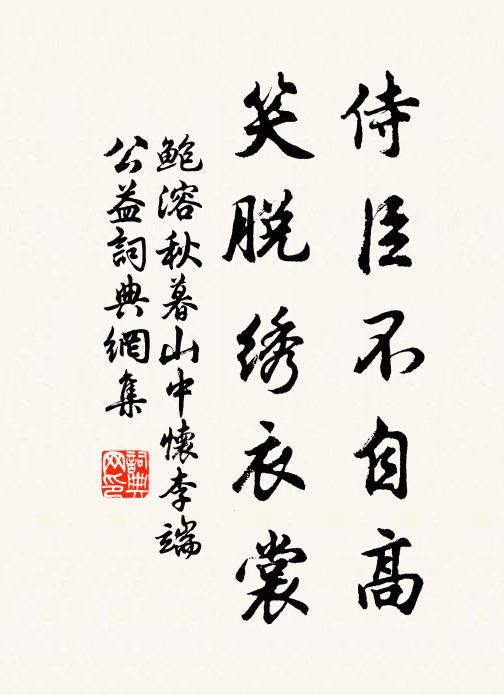 侍臣不自高
笑脱绣衣裳
鲍溶秋暮山中懷李端
公益詞典網集
詞典
网印